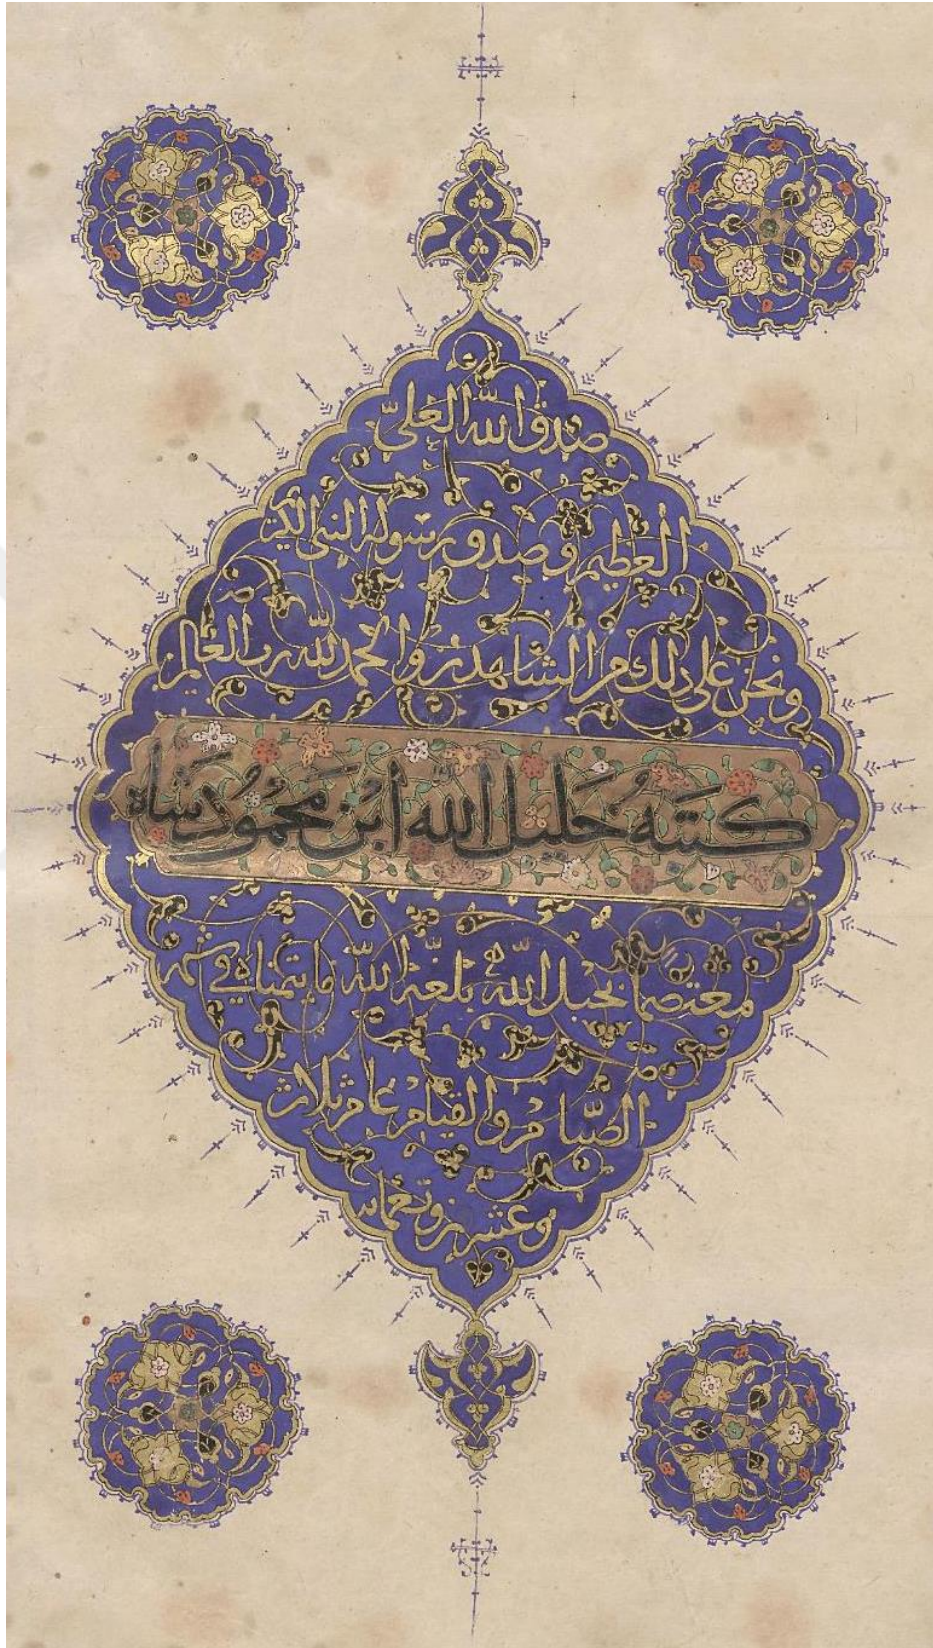 صدق الله العلي
العظيم وصدق رسوله النبي الكريم
ونحن على ذلك من الشاهدين والحمد لله رب العالمين
كتبه خليل الله ابن محمود شاه
معتصما بحبل الله بلغه الله ما يتمناه في شهر
الصيام والقيام عام ثلاث
وعشرين وتسعمائة